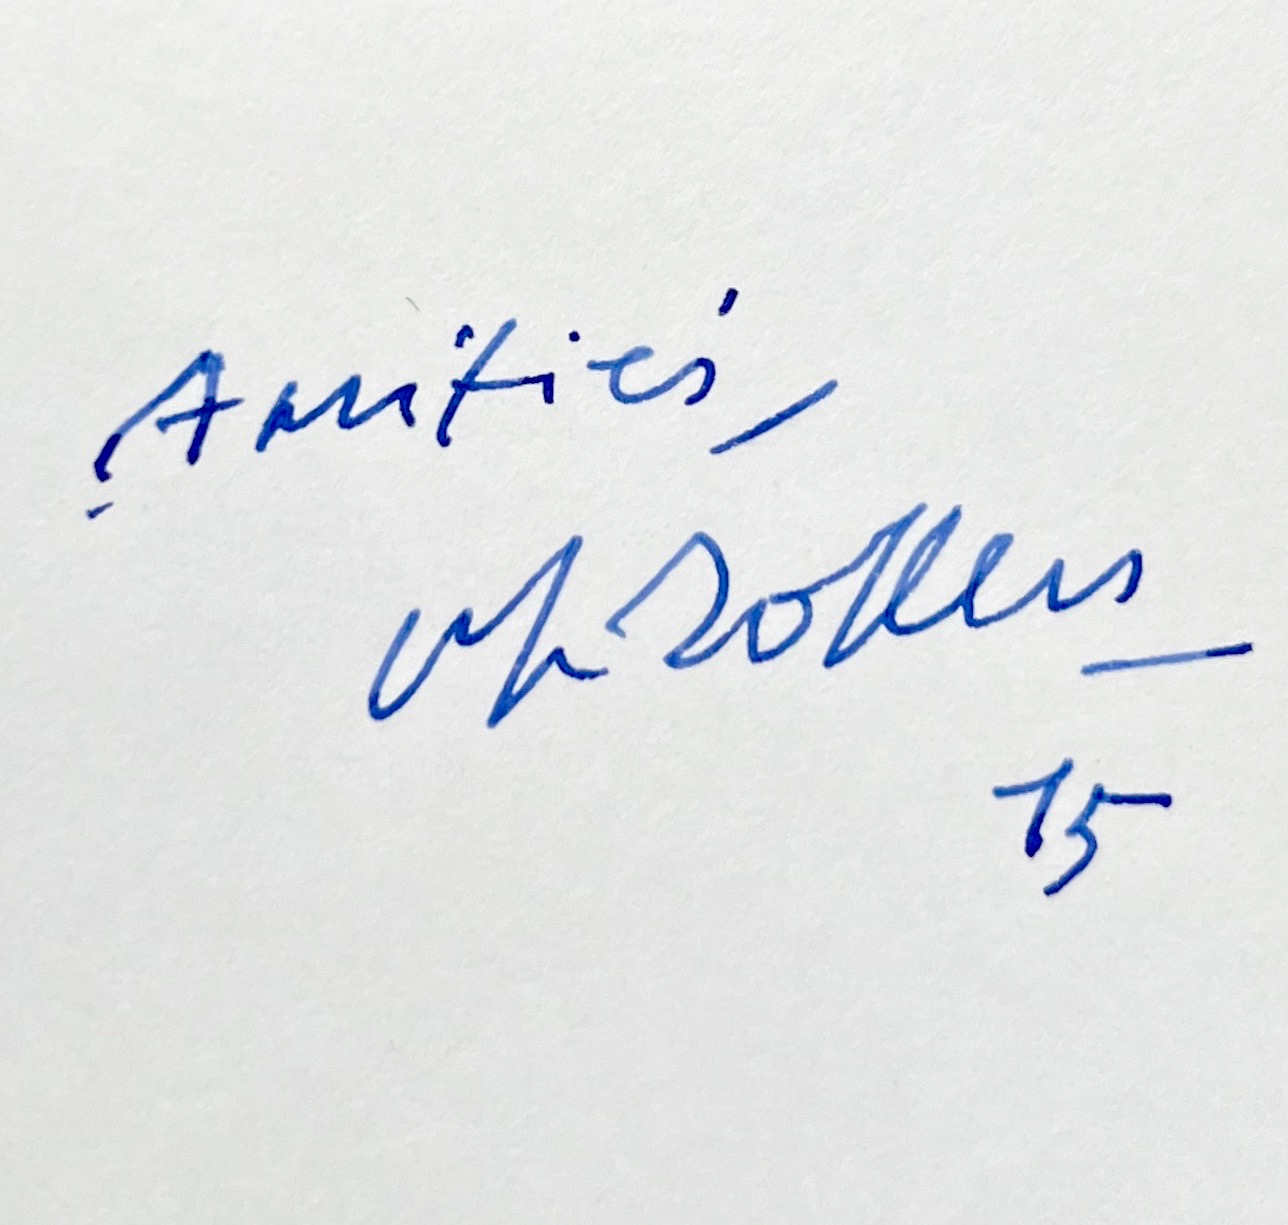 Amitiés,
Ph Sollers
15